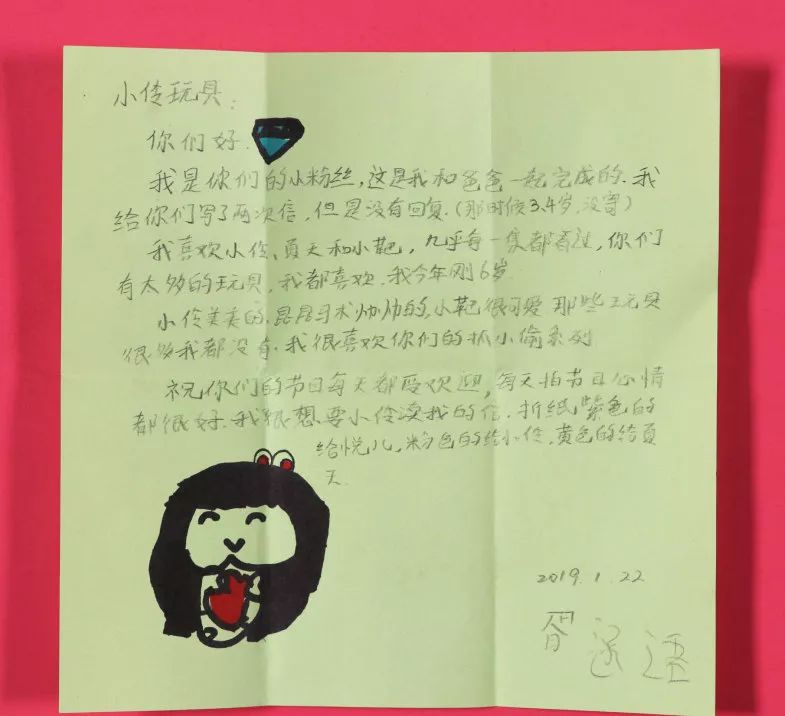 小伶玩具：
你们好.
我是你们的小粉丝,这是我和爸爸一起完成的.我
给你们写了两次信,但是没有回复.(那时候3.4岁,没寄)
我喜欢小伶、夏天和小靴,几乎每一集都看过,你们
有太多的玩具,我都喜欢.我今年刚6岁.
小伶美美的.昆昆 术帅帅的.小靴很可爱 那些玩具
很多我都没有.我很喜欢你们的抓小偷系列
祝你们的节目每天都受欢迎,每天拍节目心情
都很好.我很想要小伶读我的信.折纸紫色的
给悦儿,粉色的给小伶,黄色的给夏
天.
2019.1.22